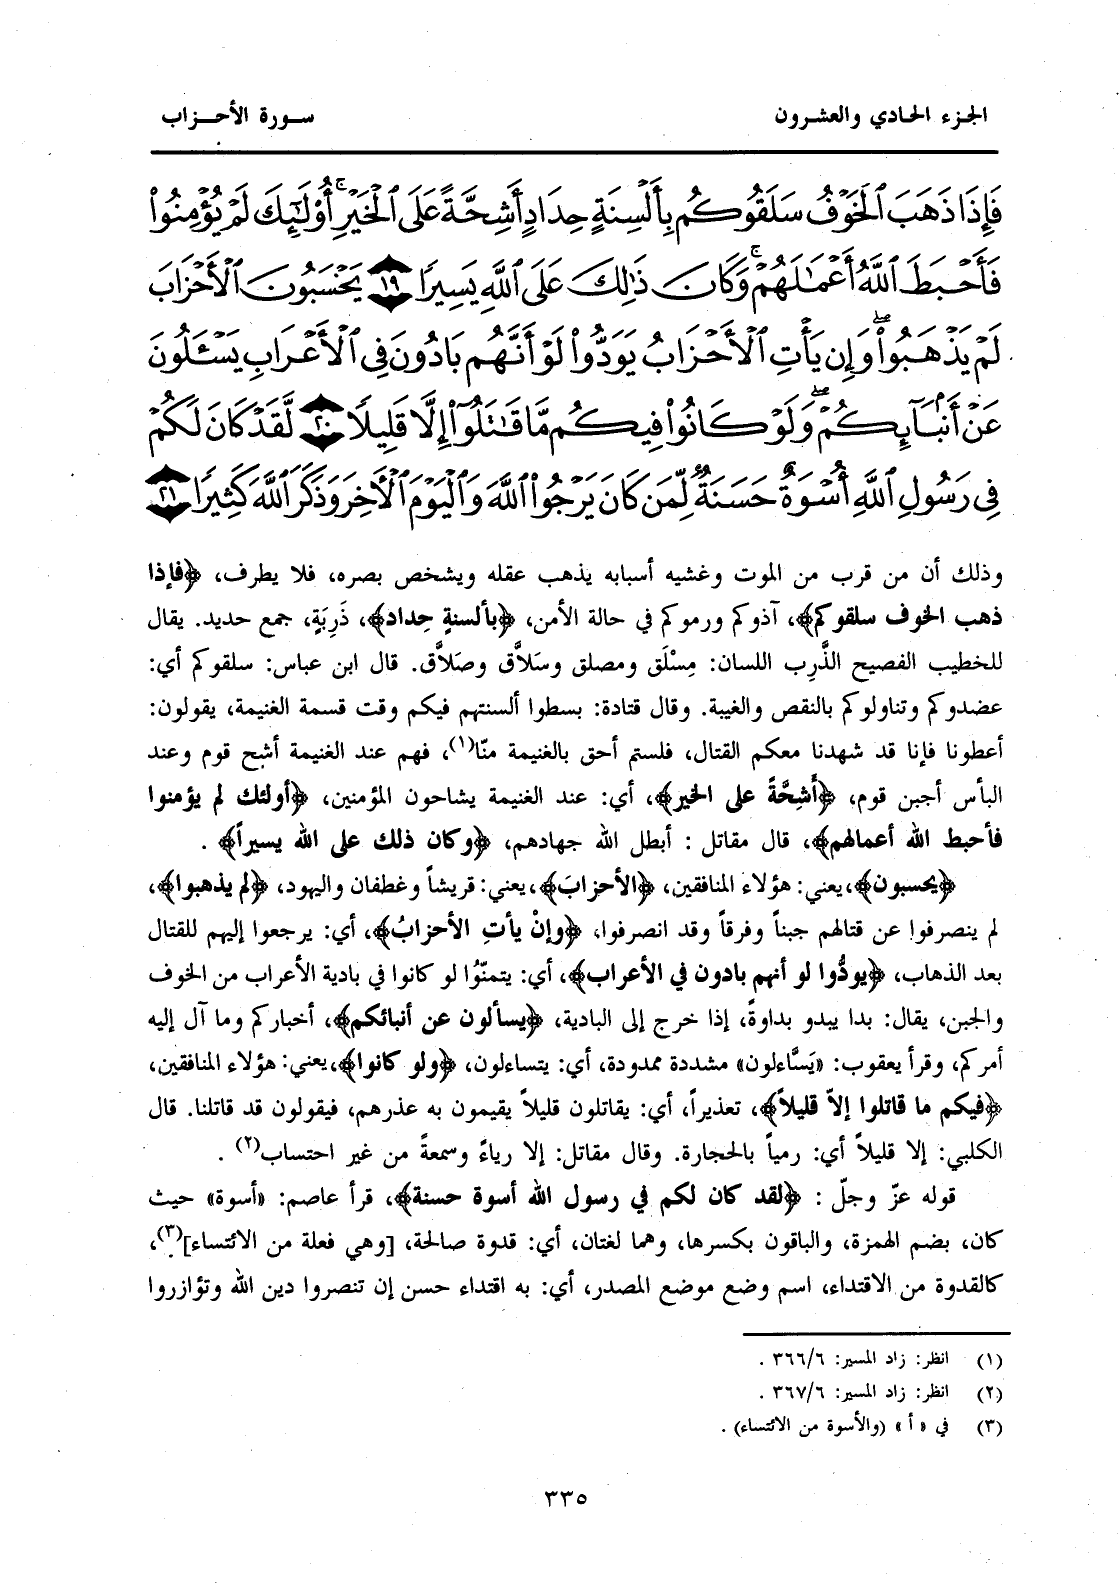 الجزء الحادي والعشرون
سورة الأحزاب
فَإِذَا ذَهَبَ ٱلْخَوْفُ سَلَقُوكُم بِأَلْسِنَةٍ حِدَادٍ أَشِحَّةً عَلَى ٱلْخَيْرِ ۚ أُو۟لَٰٓئِكَ لَمْ يُؤْمِنُوا۟
فَأَحْبَطَ ٱللَّهُ أَعْمَٰلَهُمْ ۚ وَكَانَ ذَٰلِكَ عَلَى ٱللَّهِ يَسِيرًا ١٩ يَحْسَبُونَ ٱلْأَحْزَابَ
لَمْ يَذْهَبُوا۟ ۖ وَإِن يَأْتِ ٱلْأَحْزَابُ يَوَدُّوا۟ لَوْ أَنَّهُم بَادُونَ فِى ٱلْأَعْرَابِ يَسْـَٔلُونَ
عَنْ أَنۢبَآئِكُمْ ۖ وَلَوْ كَانُوا۟ فِيكُم مَّا قَٰتَلُوٓا۟ إِلَّا قَلِيلًا ٢٠ لَّقَدْ كَانَ لَكُمْ
فِى رَسُولِ ٱللَّهِ أُسْوَةٌ حَسَنَةٌ لِّمَن كَانَ يَرْجُوا۟ ٱللَّهَ وَٱلْيَوْمَ ٱلْءَاخِرَ وَذَكَرَ ٱللَّهَ كَثِيرًا ٢١
وذلك أن من قرب من الموت وغشيه أسبابه يذهب عقله ويشخص بصره، فلا يطرف، ﴿فإذا
ذهب الخوف سلقوكم﴾، آذوكم ورموكم في حالة الأمن، ﴿بألسنةٍ حِداد﴾، ذَرِبَةٍ، جمع حديد. يقال
للخطيب الفصيح الذَّرِب اللسان: مِسْلَق ومصلق وسَلاَّق وصَلاَّق. قال ابن عباس: سلقوكم أي:
عضدوكم وتناولوكم بالنقص والغيبة. وقال قتادة: بسطوا ألسنتهم فيكم وقت قسمة الغنيمة، يقولون:
أعطونا فإنا قد شهدنا معكم القتال، فلستم أحق بالغنيمة منّا(١)، فهم عند الغنيمة أشح قوم وعند
البأس أجبن قوم، ﴿أَشِحَّةً على الخير﴾، أي: عند الغنيمة يشاحون المؤمنين، ﴿أولئك لم يؤمنوا
فأحبط الله أعمالهم﴾، قال مقاتل : أبطل الله جهادهم، ﴿وكان ذلك على الله يسيراً﴾ .
﴿يحسبون﴾،يعني: هؤلاء المنافقين، ﴿الأحزابَ﴾،يعني: قريشاً وغطفان واليهود، ﴿لم يذهبوا﴾،
لم ينصرفوا عن قتالهم جبناً وفرقاً وقد انصرفوا، ﴿وإنْ يأتِ الأحزابُ﴾، أي: يرجعوا إليهم للقتال
بعد الذهاب، ﴿يودُّوا لو أنهم بادون في الأعراب﴾، أي: يتمنّوُا لو كانوا في بادية الأعراب من الخوف
والجبن، يقال: بدا يبدو بداوةً، إذا خرج إلى البادية، ﴿يسألون عن أنبائكم﴾، أخباركم وما آل إليه
أمركم، وقرأ يعقوب: «يَسَّاءلون» مشددة ممدودة، أي: يتساءلون، ﴿ولو كانوا﴾،يعني: هؤلاء المنافقين،
﴿فيكم ما قاتلوا إلاّ قليلاً﴾، تعذيراً، أي: يقاتلون قليلاً يقيمون به عذرهم، فيقولون قد قاتلنا. قال
الكلبي: إلا قليلاً أي: رمياً بالحجارة. وقال مقاتل: إلا رياءً وسمعةً من غير احتساب(٢) .
قوله عزّ وجلّ : ﴿لقد كان لكم في رسول الله أسوة حسنة﴾، قرأ عاصم: «أسوة» حيث
كان، بضم الهمزة، والباقون بكسرها، وهما لغتان، أي: قدوة صالحة، [وهي فعلة من الائتساء](٣)،
كالقدوة من الاقتداء، اسم وضع موضع المصدر، أي: به اقتداء حسن إن تنصروا دين الله وتؤازروا
(١) انظر: زاد المسير: ٣٦٦/٦ .
(٢) انظر: زاد المسير: ٣٦٧/٦ .
(٣) في « أ » (والأسوة من الائتساء) .
٣٣٥